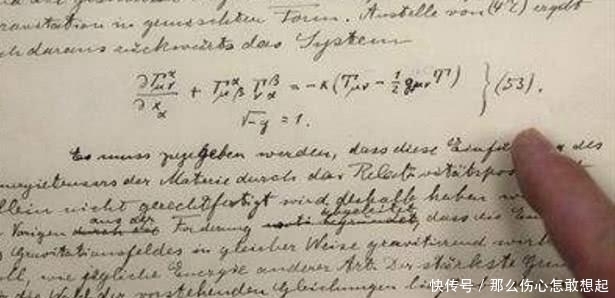 in gemischten Form. Anstelle von ergibt
ch daraus rückwärts das System
∂Γ^α_μν/∂x_α + Γ^α_μβ Γ^β_να = -κ(T_μν - ½ g_μν T) } (53).
√-g = 1.
Es muss zugegeben werden, dass diese Einf des
nergietensors der Materie durch das Relativitätspos
llein nicht gerechtfertigt wird, deshalb haben
Vorigen aus der Forderung abgeleitet, dass die En
Gravitationsfeldes in gleicher Weise gravitierend wirk
oll, wie jegliche Energie anderer Art. Der stärkste Grun
die Wahl der vorstehenden Gleichungen lieg
快传号 / 那么伤心怎敢想起